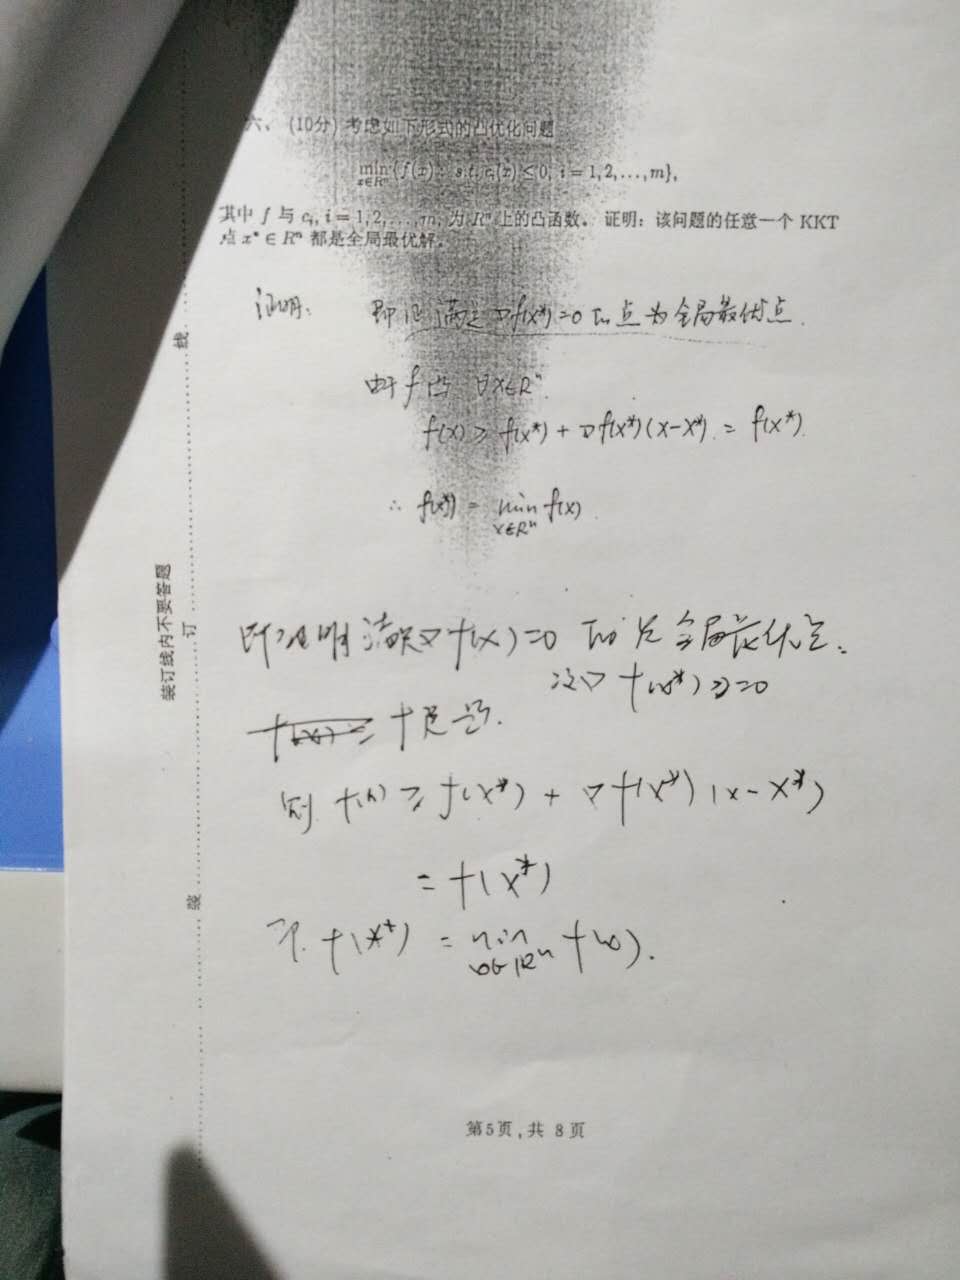 六、(10分) 考虑如下形式的凸优化问题
min{f(x): s.t. cᵢ(x) ≤ 0, i = 1, 2, ..., m},
x∈Rⁿ
其中 f 与 cᵢ, i = 1, 2, ..., m, 为 Rⁿ 上的凸函数。 证明：该问题的任意一个 KKT
点 x* ∈ Rⁿ 都是全局最优解。
证明: 即证满足 ∇f(x*)=0 的点为全局最优点.
由于 f 凸 ∀x∈Rⁿ.
f(x) ≥ f(x*) + ∇f(x*)(x-x*) = f(x*).
∴ f(x*) = min f(x)
x∈Rⁿ
即证明满足∇f(x)=0 的点全局最优点.
∇f(x*)=0
f是凸.
则 f(x) ≥ f(x*) + ∇f(x*)(x-x*)
= f(x*)
f(x*) = min f(x).
x∈Rⁿ
装订线内不要答题
线
订
装
第5页, 共 8 页